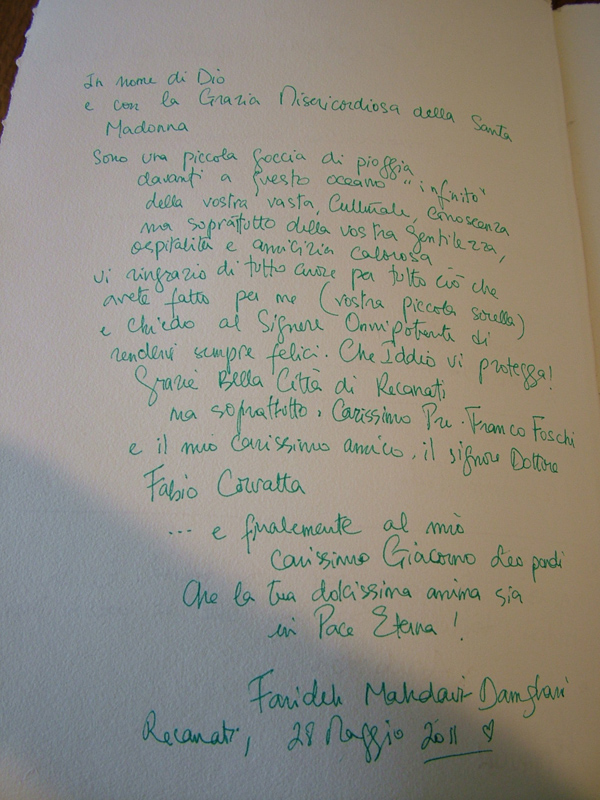 In nome di Dio
e con la Grazia Misericordiosa della Santa
Madonna
Sono una piccola goccia di pioggia
davanti a questo oceano "infinito"
della vostra vasta, Culturale, conoscenza
ma soprattutto della vostra gentilezza,
ospitalità e amicizia calorosa
vi ringrazio di tutto cuore per tutto ciò che
avete fatto per me (vostra piccola sorella)
e chiedo al Signore Onnipotente di
rendervi sempre felici. Che Iddio vi protegga!
Grazie Bella Città di Recanati
ma soprattutto, Carissimo Pre. Franco Foschi
e il mio carissimo amico, il signore Dottore
Fabio Corvatta
... e finalemente al mio
carissimo Giacomo Leopardi
Che la tua dolcissima anima sia
in Pace Eterna!
Farideh Mahdavi-Damghani
Recanati, 28 Maggio 2011